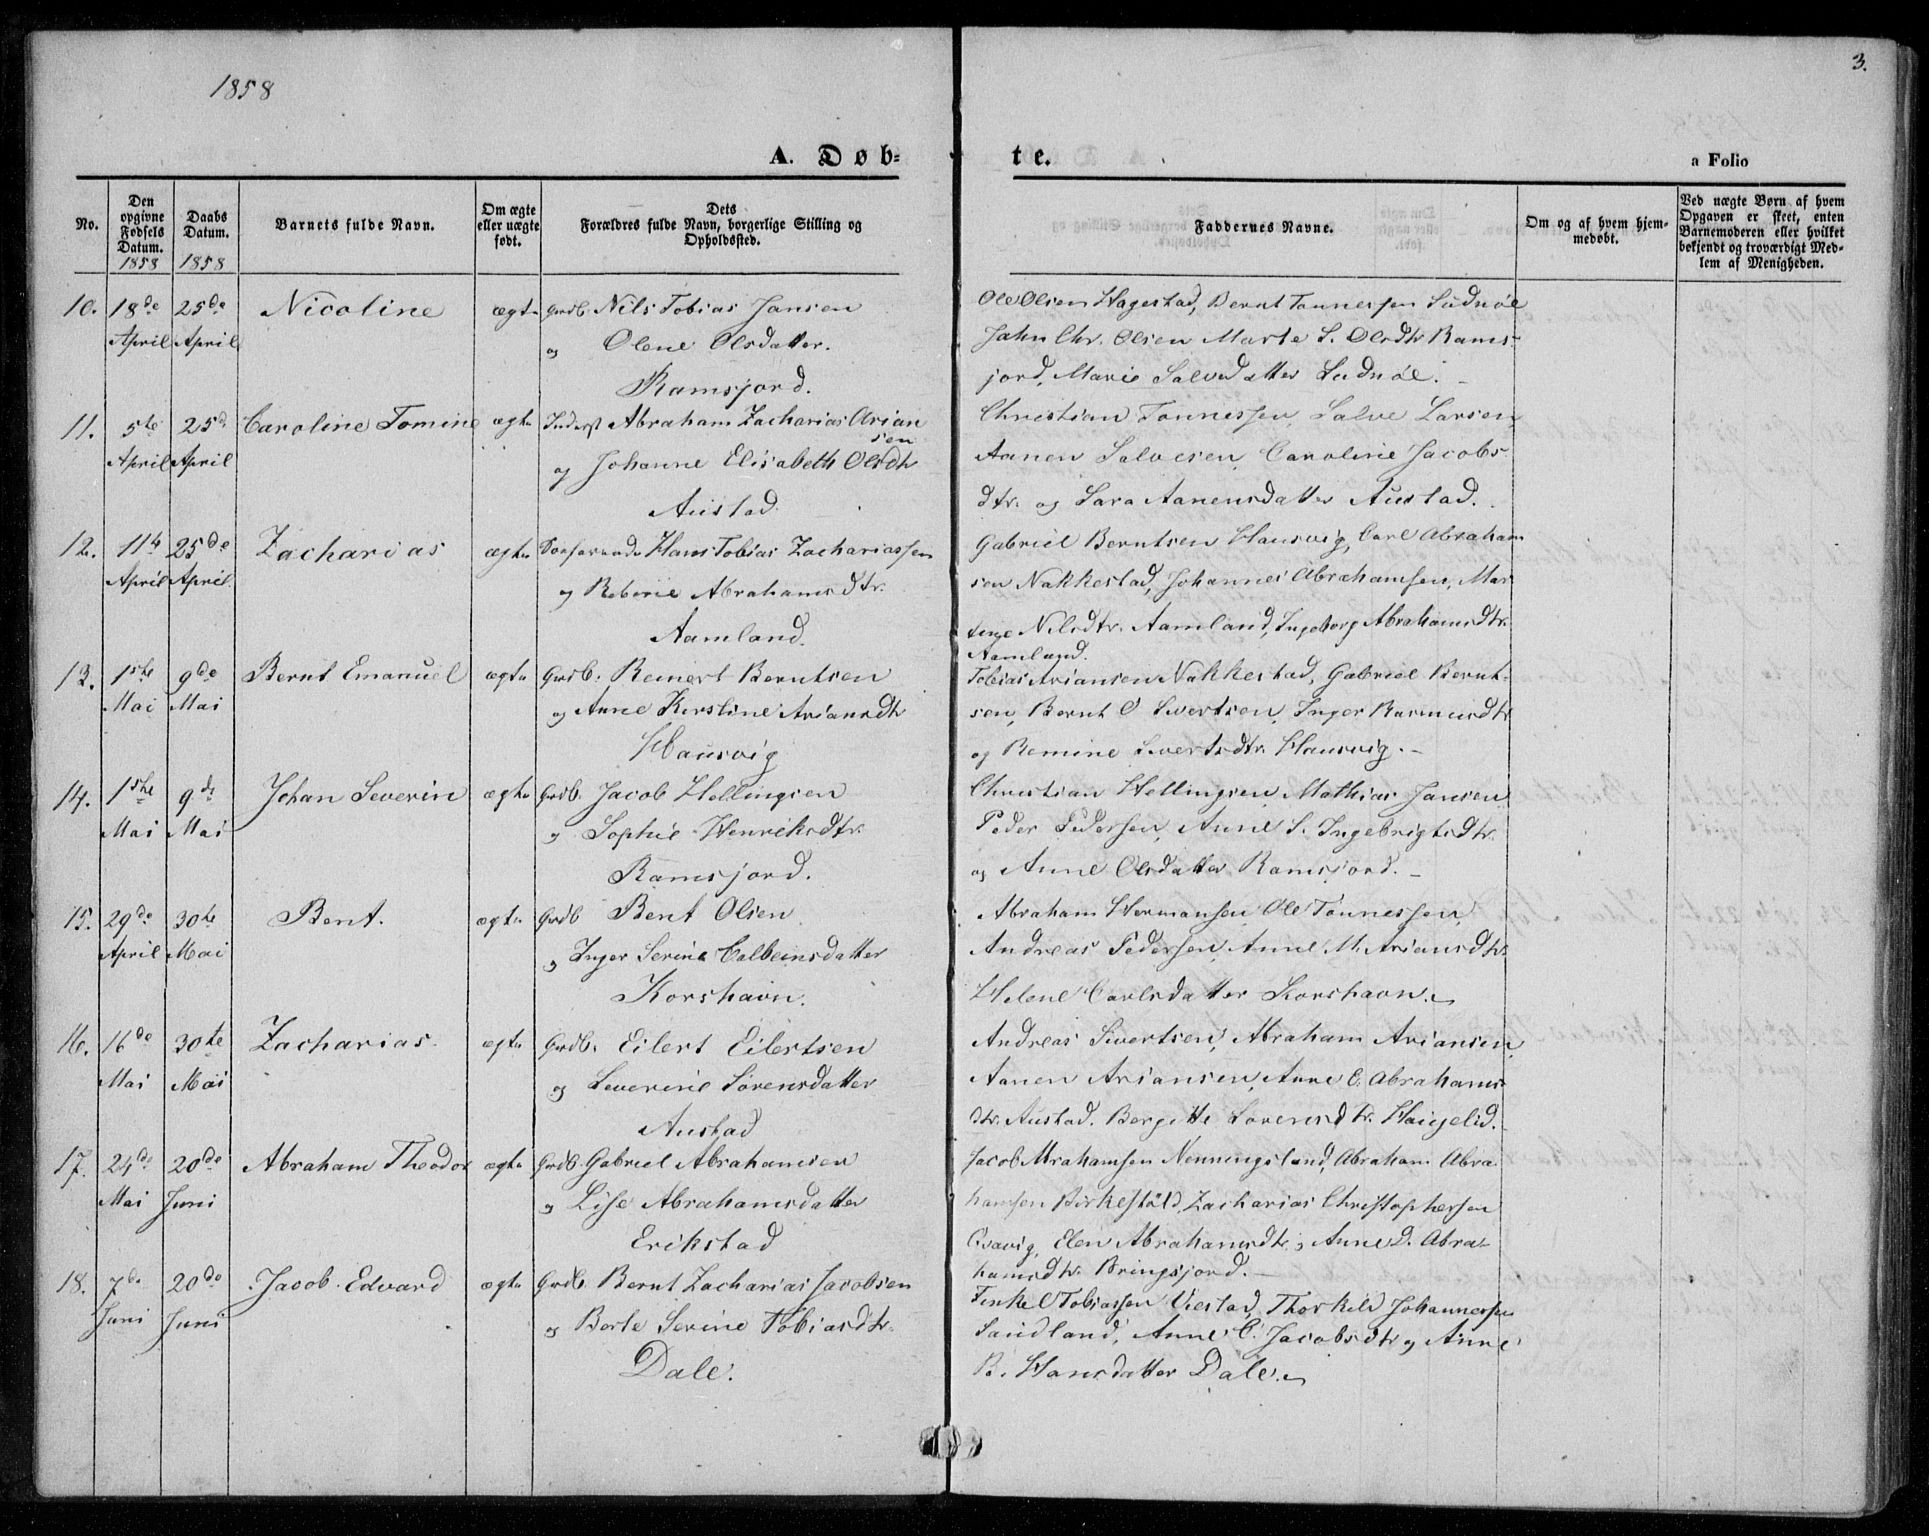 1858
3.
A. Døb-
te.
a Folio
No.
Den opgivne Fødsels Datum. 1858
Daabs Datum. 1858
Barnets fulde Navn.
Om ægte eller uægte født.
Dets Forældres fulde Navn, borgerlige Stilling og Opholdssted.
Faddernes Navne.
Om og af hvem hjemmedøbt.
Ved uægte Børn af hvem Opgaven er skeet, enten Barnemoderen eller hvilket bekjendt og troværdigt Medlem af Menigheden.
10. 18de April 25de April Nicoline ægte Grdb. Nils Tobias Jansen
og Olene Olsdatter.
Ramsjord.
Ole Olsen Hagestad, Bernt Tønnessen
Jahn Chr. Olsen Marte S. Olsdtr Rams-
jord, Marie Salvedatter
11. 5te April 25d April Caroline Tomine ægte Inderst Abraham Zacharias Arian
sen
og Johanne Elisabeth Olsdtr
Austad
Christian Tønnessen, Salve Larsen,
Aanen Salvesen, Caroline Jacobs-
dtr. og Sara Aanensdatter Austad.
12. 11te April 25de April Zacharias ægte Hans Tobias Zachariassen
og Reborie Abrahamsdtr.
Aamland.
Gabriel Berntsen Hausvig, Carl Abraham
sen Nakkestad, Johannes Abrahamsen, Mar
tine Nilsdtr. Aamland, Ingeborg Abrahamsdtr.
Aamland.
13. 1ste Mai 9de Mai Bernt Emanuel ægte Grdb: Reinert Berntsen
og Anne Kirstine Ariansdtr
Hausvig
Tobias Ariansen Nakkestad, Gabriel Bernt-
sen, Bernt O Sivertsen, Inger Rasmusdtr
og Remine Sivertsdtr. Hausvig.
14. 1ste Mai 9de Mai Johan Severin ægte Grdb. Jacob Hellingsen
og Sophie Henriksdtr.
Ramsjord.
Christian Hellingsen, Mathias Jansen
Peder Pedersen, Anne S. Ingebrigtsdtr.
og Anne Olsdatter Ramsjord.
15. 29de April 30te Mai Bent. ægte Grdb Bent Olsen
og Inger Serine Colbeinsdatter
Korshavn.
Abraham Hermansen, Ole Tønnessen,
Andreas Pedersen, Anne M. Ariansdtr.
Helene Carlsdatter Korshavn.
16. 16de Mai 30te Mai Zacharias. ægte Grdb. Eilert Eilertsen
og Severine Sørensdatter
Austad
Andreas Sivertsen, Abraham Ariansen,
Aanen Ariansen, Anne E. Abrahams-
dtr. Austad. Bergitte Sørensdtr. Haugelid.
17. 24de Mai 20de Juni Abraham Theodor ægte Grdb. Gabriel Abrahamsen
og Lise Abrahamsdatter
Erikstad
Jacob Abrahamsen Nenningsland, Abraham Abra
hamsen Birkestøld, Zacharias Christophersen
Qvavig, Elen Abrahamsdtr. og Anne D. Abra-
hamsdtr. Bringsjord.
18. 7de Juni 20de Juni Jacob Edvard ægte Grdb. Bernt Zacharias Jacobsen
og Berte Serine Tobiasdtr.
Dale.
Tenkel Tobiassen Viestad, Thorkild Johannessen
Sandland, Anne C. Jacobsdtr og Anne
B. Hansdatter Dale.